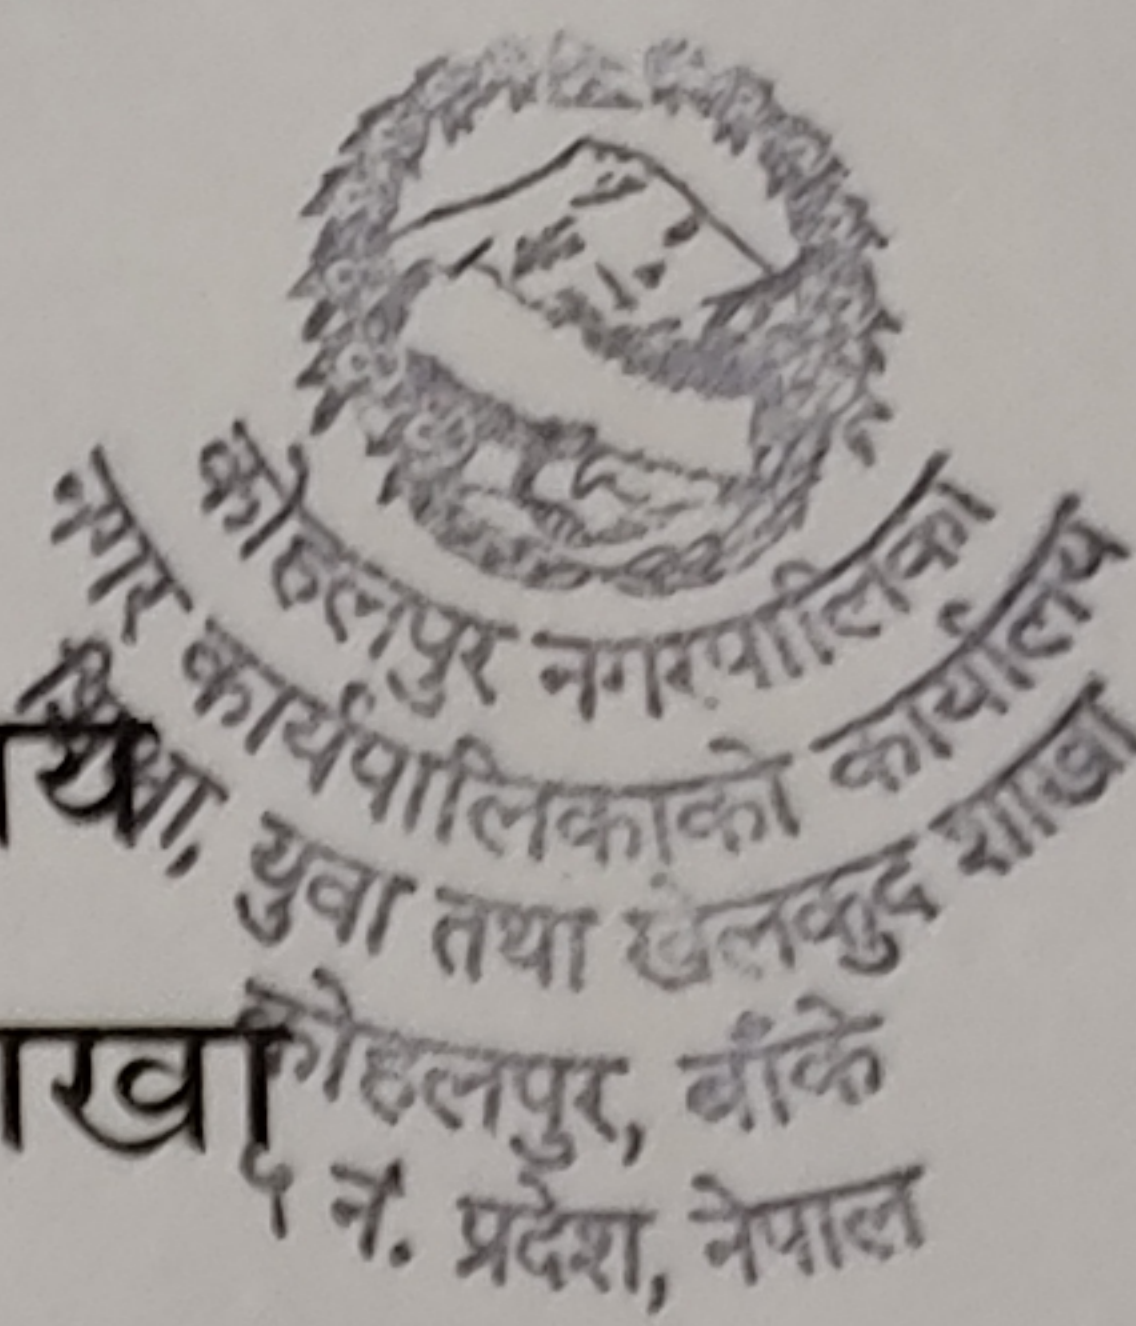 कोहलपुर नगरपालिका
नगर कार्यपालिकाको कार्यालय
शिक्षा, युवा तथा खेलकुद शाखा
कोहलपुर, बाँके
५ नं. प्रदेश, नेपाल
ाखा